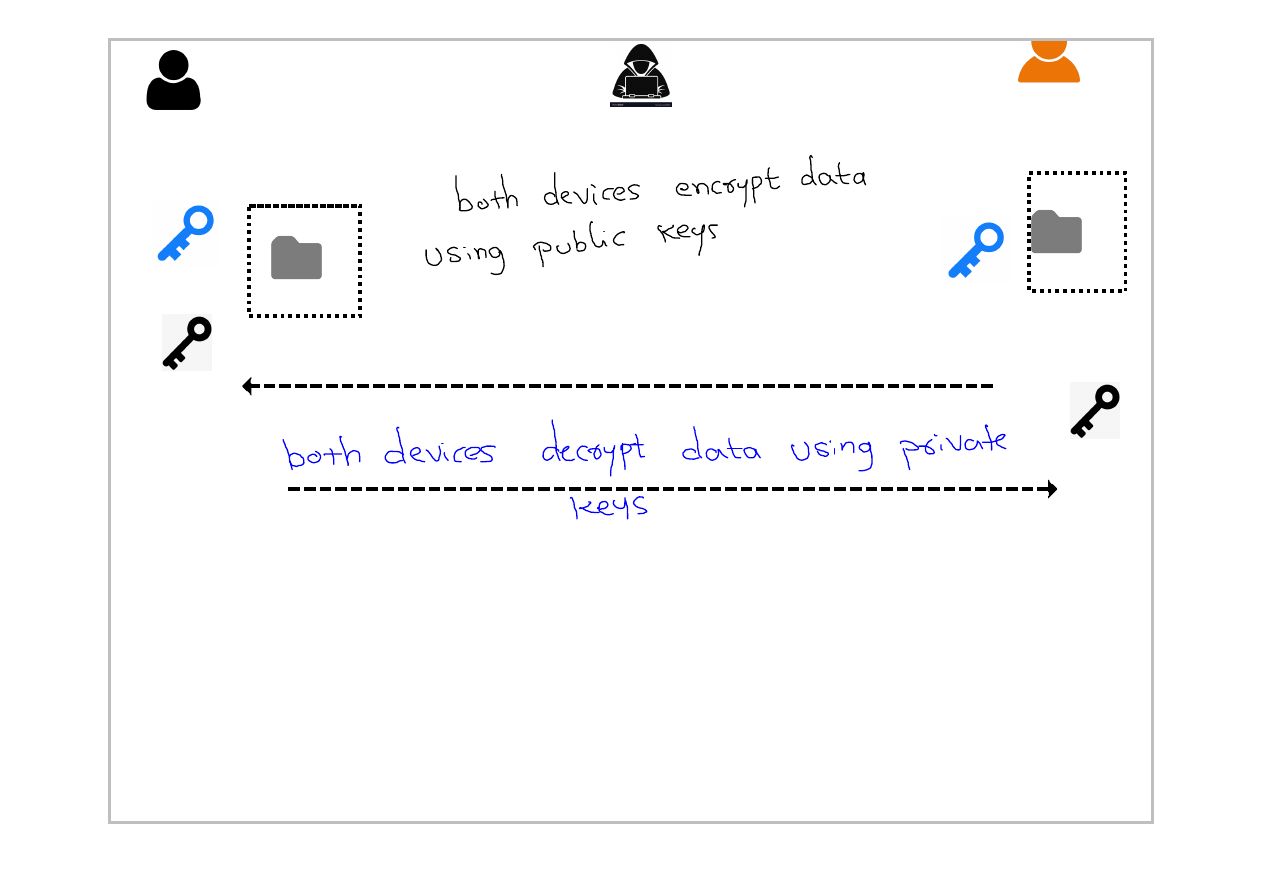 both devices encrypt data
using public keys
both devices decrypt data using private
keys